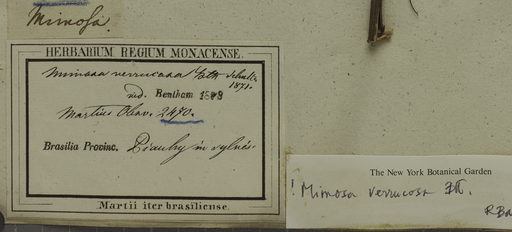 Mimosa.
HERBARIUM REGIUM MONACENSE.
Mimosa verrucosa Bth
1871.
vid. Bentham 1873
Martius Obsv. 2470.
Brasilia Provinc. Piauhy in sylvis.
Martii iter brasiliense.
The New York Botanical Garden
! Mimosa verrucosa Bth.
R Ba